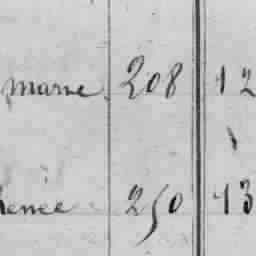 marne 208 12
renée 250 13